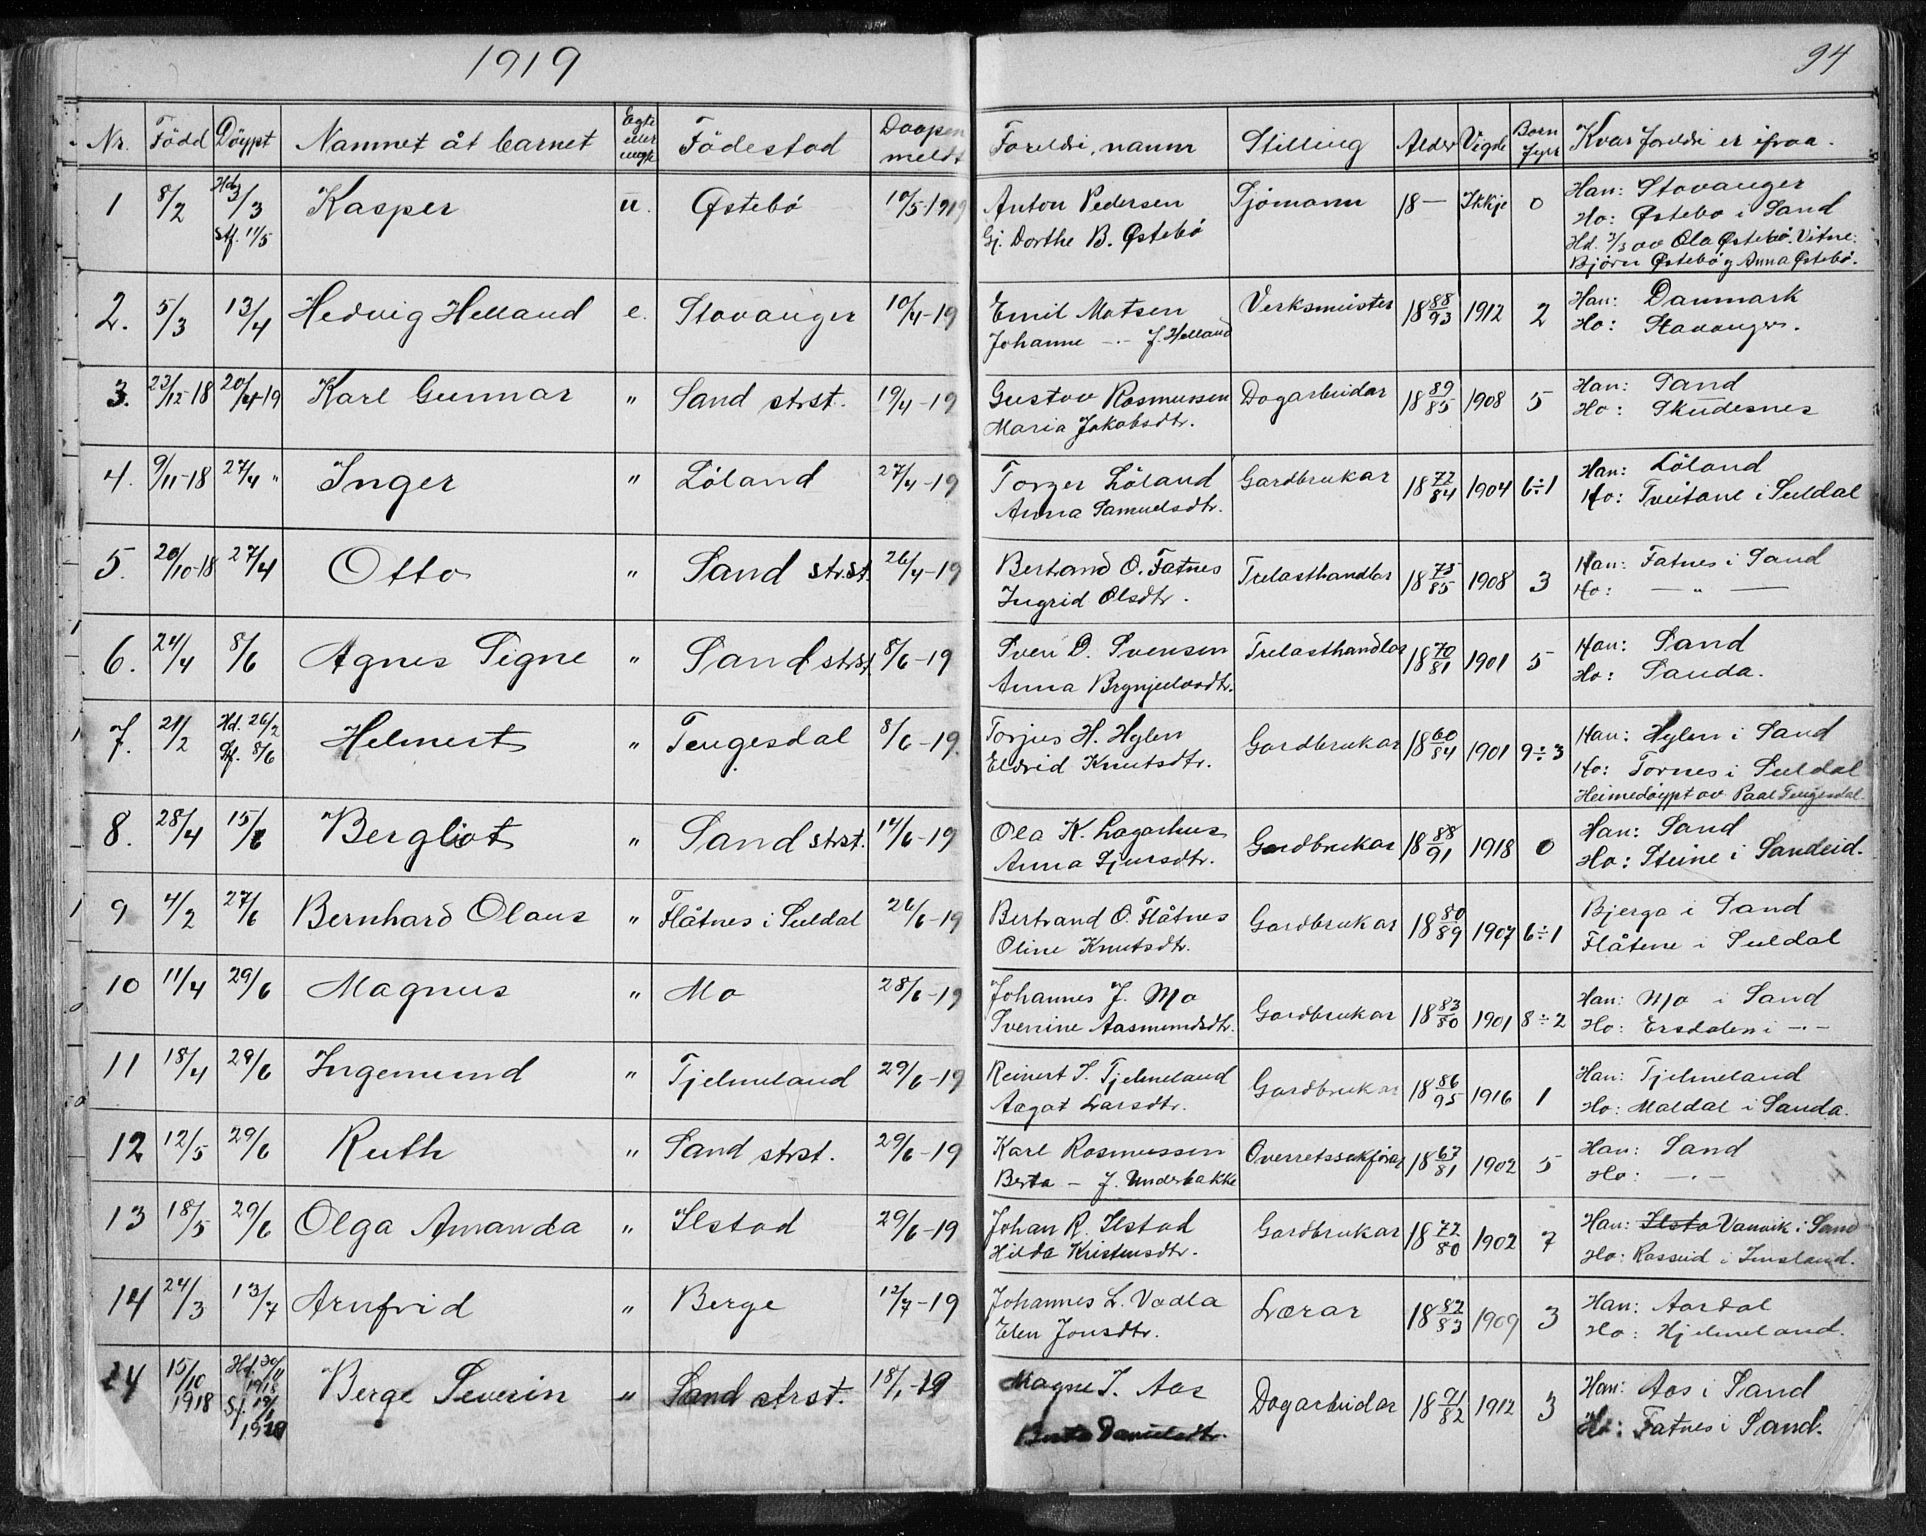 1919
94
Nr. Född Döypt Namnet åt barnet Egte eller uegte Födestad Daapen meldt Foreldri, namn Stilling Alder Vigde Born fyrr Kvar foreldri er ifraa.
1 8/2 Hd. 3/3 Kasper u. Østebö 10/5-1919 Anton Pedersen Sjömann 18— Ikkje 0 Han: Stavanger
Stf. 11/5 Gj. Dorthe B. Østebö Ho: Østebø i Sand
Hd. 3/3 av Ola Østebö. Vitne:
Björn Østebö og Anna Østebö.
2. 5/3 13/4 Hedvig Helland e. Stavanger 10/4-19 Emil Matsen Verksmeister 18 88/93 1912 2 Han: Danmark
Johanne -"- J. Helland Ho: Stavanger.
3. 23/12-18 20/4-19 Karl Gunnar " Sand strst. 19/4-19 Gustav Rasmussen Dagarbeidar 18 89/85 1908 5 Han: Sand
Maria Jakobsdtr. Ho: Skudesnes
4. 9/11-18 27/4 " Inger " Löland 27/4-19 Torger Löland Gardbrukar 18 72/84 1904 6÷1 Han: Löland
Anna Samuelsdtr. Ho: Tveitane i Suldal
5. 20/10-18 27/4 Otto " Sand strst. 26/4-19 Bertand O. Fatnes Trelasthandlar 18 75/85 1908 3 Han: Fatnes i Sand
Ingrid Olsdtr. Ho: — " —
6. 24/4 8/6 Agnes Signe " Sand strst. 8/6-19 Sven D. Svensen Trelasthandlar 18 70/81 1901 5 Han: Sand
Anna Brynjulvsdtr. Ho: Sauda.
7. 21/2 Hd. 26/2 Helmert " Tengesdal 8/6-19. Torjus H. Hylen Gardbrukar 18 60/84 1901 9÷3 Han: Hylen i Sand
Stf. 8/6 Eldrid Knutsdtr. Ho: Tornes i Suldal
Heimedöypt av Paal Tengesdal.
8. 28/4 15/6 Bergliot " Sand strst. 14/6-19 Ola K. Lagarhus Gardbrukar 18 88/91 1918 0 Han: Sand
Anna Sjursdtr. Ho: Steine i Sandeid.
9 4/2 27/6 Bernhard Olaus " Flåtnes i Suldal 26/6-19 Bertrand O. Flåtnes Gardbrukar 18 80/89 1907 6÷1 Bjerga i Sand
Oline Knutsdtr. Flåtene i Suldal
10 11/4 29/6 Magnus " Mo 28/6-19 Johannes J. Mo Gardbrukar 18 83/80 1901 8÷2 Han: Mo i Sand
Sverine Aasmundsdtr. Ho: Ersdalen i -"-
11 18/4 29/6 Ingemund " Tjelmeland 29/6-19 Reinert S. Tjelmeland Gardbrukar 18 86/95 1916 1 Han: Tjelmeland
Aagot Larsdtr. Ho: Maldal i Sauda.
12 12/5 29/6 Ruth " Sand strst. 29/6-19 Karl Rasmussen Overretssakförar 18 67/81 1902 5 Han: Sand
Berta — J. Underbakke Ho: -"-
13 18/5 29/6 Olga Amanda " Ilstad 29/6-19 Johan R. Ilstad Gardbrukar 18 72/80 1902 7 Han: Ilsta Vanvik i Sand
Hilda Kristensdtr. Ho: Rasseid i Imsland.
14 24/3 13/7 Arnfrid " Berge 12/7-19 Johannes L. Vadla Lærar 18 82/83 1909 3 Han: Aardal
Elen Jonsdtr. Ho: Hjelmeland.
24 15/10 1918 Hd. 30/11 1918 Berge Severin " Sand strst. 18/1-19 Magne T. Aas Dagarbeidar 18 91/82 1912 3 Han: Aas i Sand
Sf. 19/1 1919 Berta Danielsdtr. Ho: Fatnes i Sand.